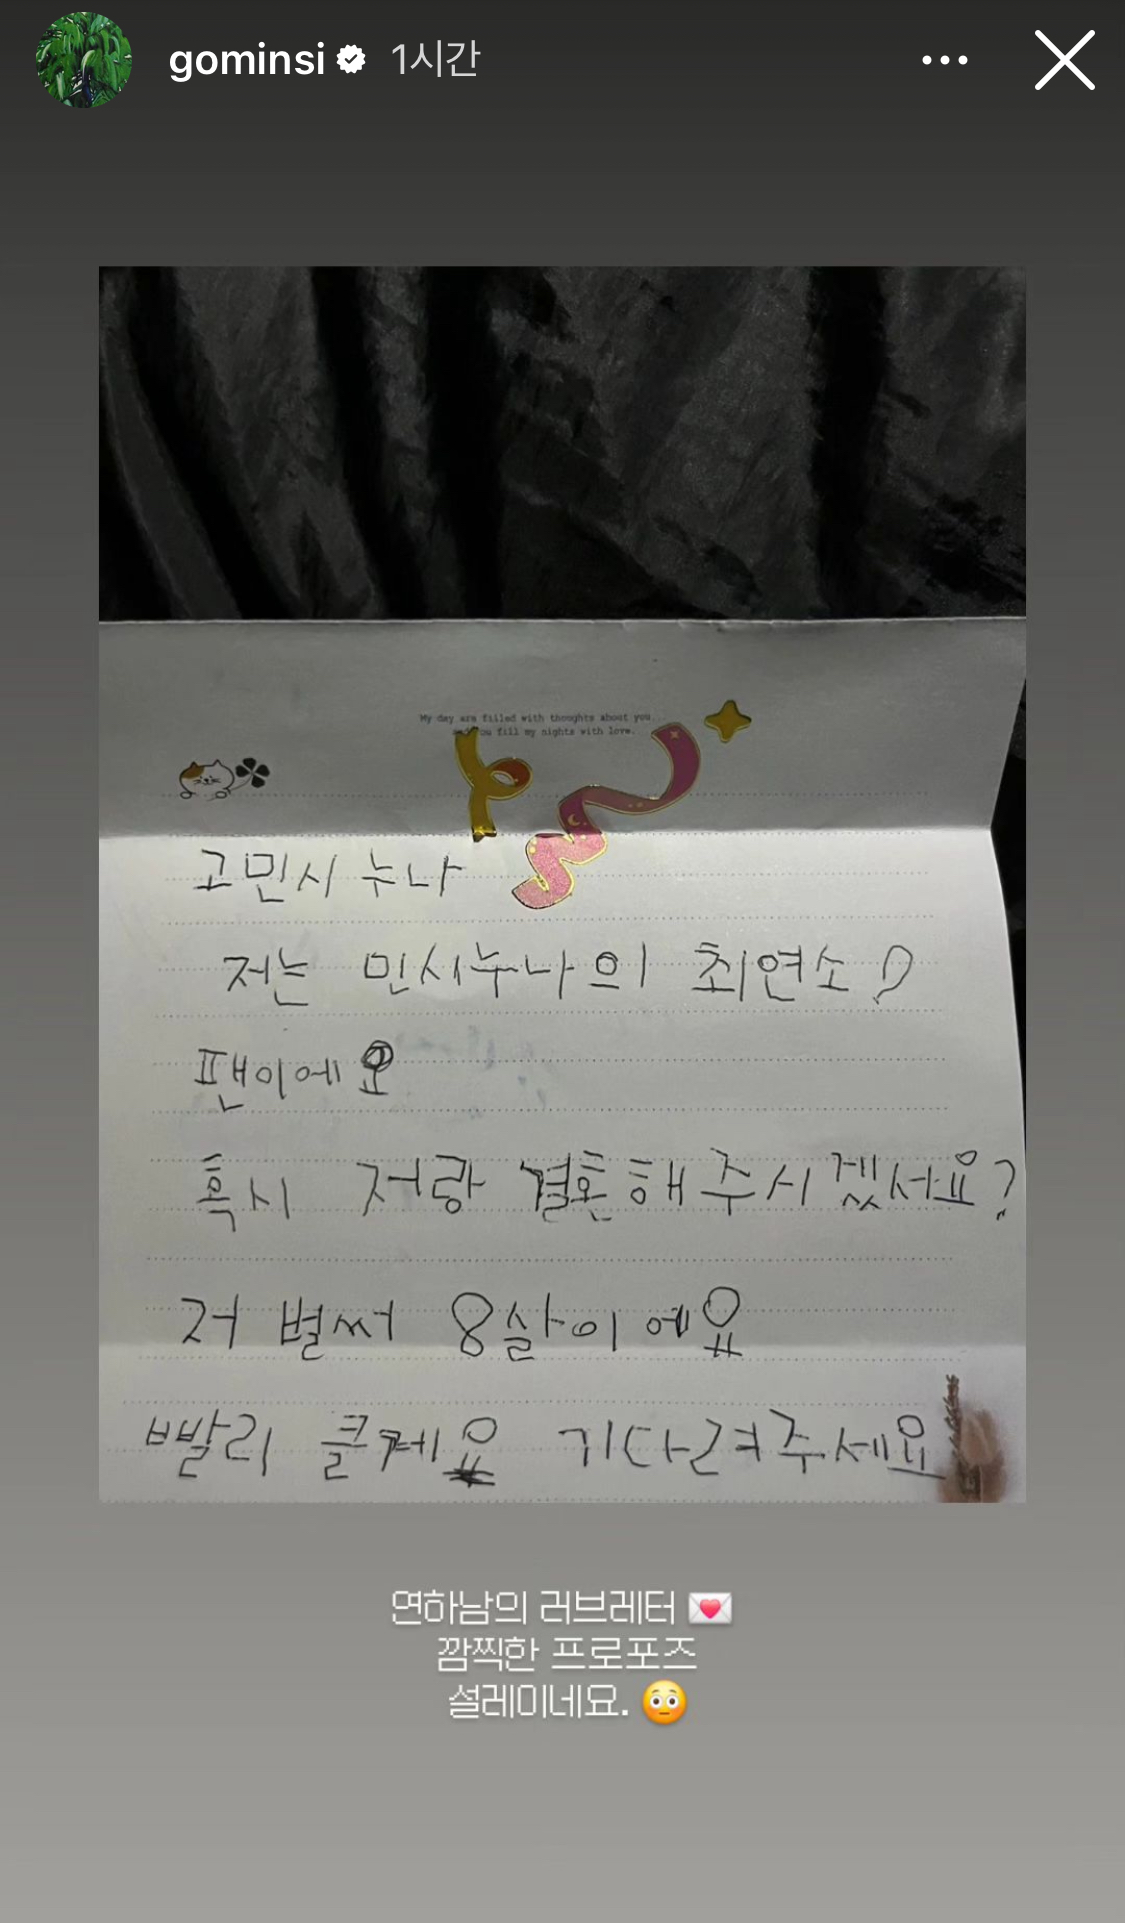 gominsi 1시간
My day are filled with thoughts about you,
and you fill my nights with love.
고민시 누나
저는 민시누나의 최연소
팬이에요
혹시 저랑 결혼해주시겠서요?
저 벌써 8살이에요
빨리 클게요 기다려주세요
연하남의 러브레터 💌
깜찍한 프로포즈
설레이네요. 😳